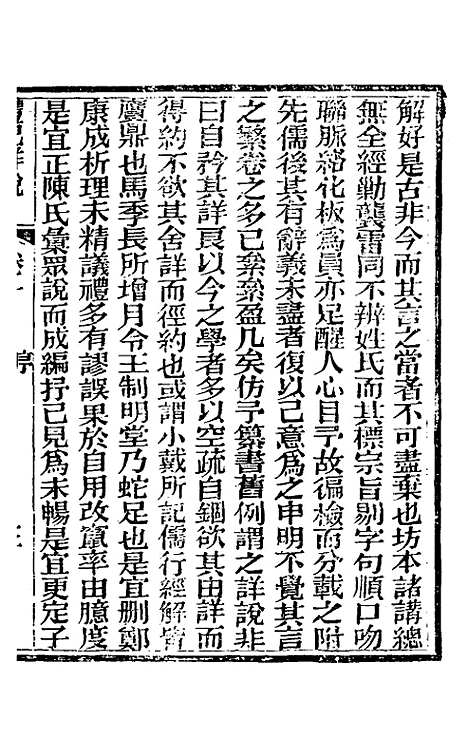 解好是古非今而其言之當者不可盡棄也坊本諸講總
無全經勦襲雷同不辨姓氏而其標宗旨剔字句順口吻
聯脈絡化板爲員亦足醒人心目予故徧檢而分載之附
先儒後其有辭義未盡者復以己意爲之申明不覺其言
之繁卷之多已纍纍盈几矣仿予纂書舊例謂之詳說非
曰自矜其詳良以今之學者多以空疏自錮欲其由詳而
得約不欲其舍詳而徑約也或謂小戴所記儒行經解皆
贗鼎也馬季長所增月令王制明堂乃蛇足也是宜刪鄭
康成析理未精議禮多有謬誤果於自用改竄率由臆度
是宜正陳氏彙眾說而成編抒己見爲未暢是宜更定子
禮記詳說
卷
序